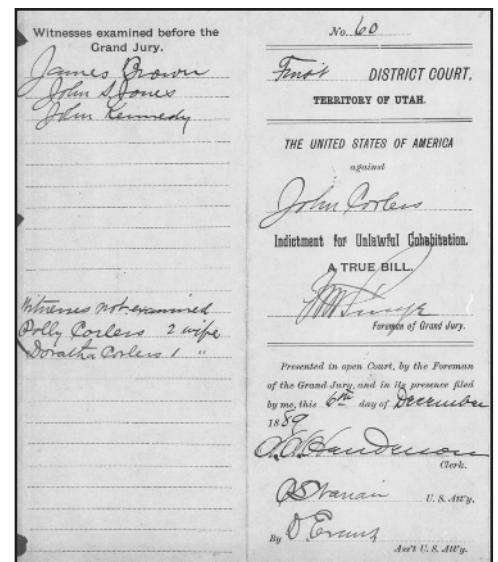 Witnesses examined before the
Grand Jury.
James Brown
John S Jones
John Kennedy
Witnesses not examined
Polly Corless 2 wife
Doratha Corless 1 "
No. 60
First DISTRICT COURT,
TERRITORY OF UTAH.
THE UNITED STATES OF AMERICA
against
John Corless
Indictment for Unlawful Cohabitation.
A TRUE BILL,
Foreman of Grand Jury.
Presented in open Court, by the Foreman
of the Grand Jury, and in its presence filed
by me, this 6th day of December
1889
Henderson
Clerk.
C S Varian U. S. Att'y.
By D Evans
Ass't U. S. Att'y.